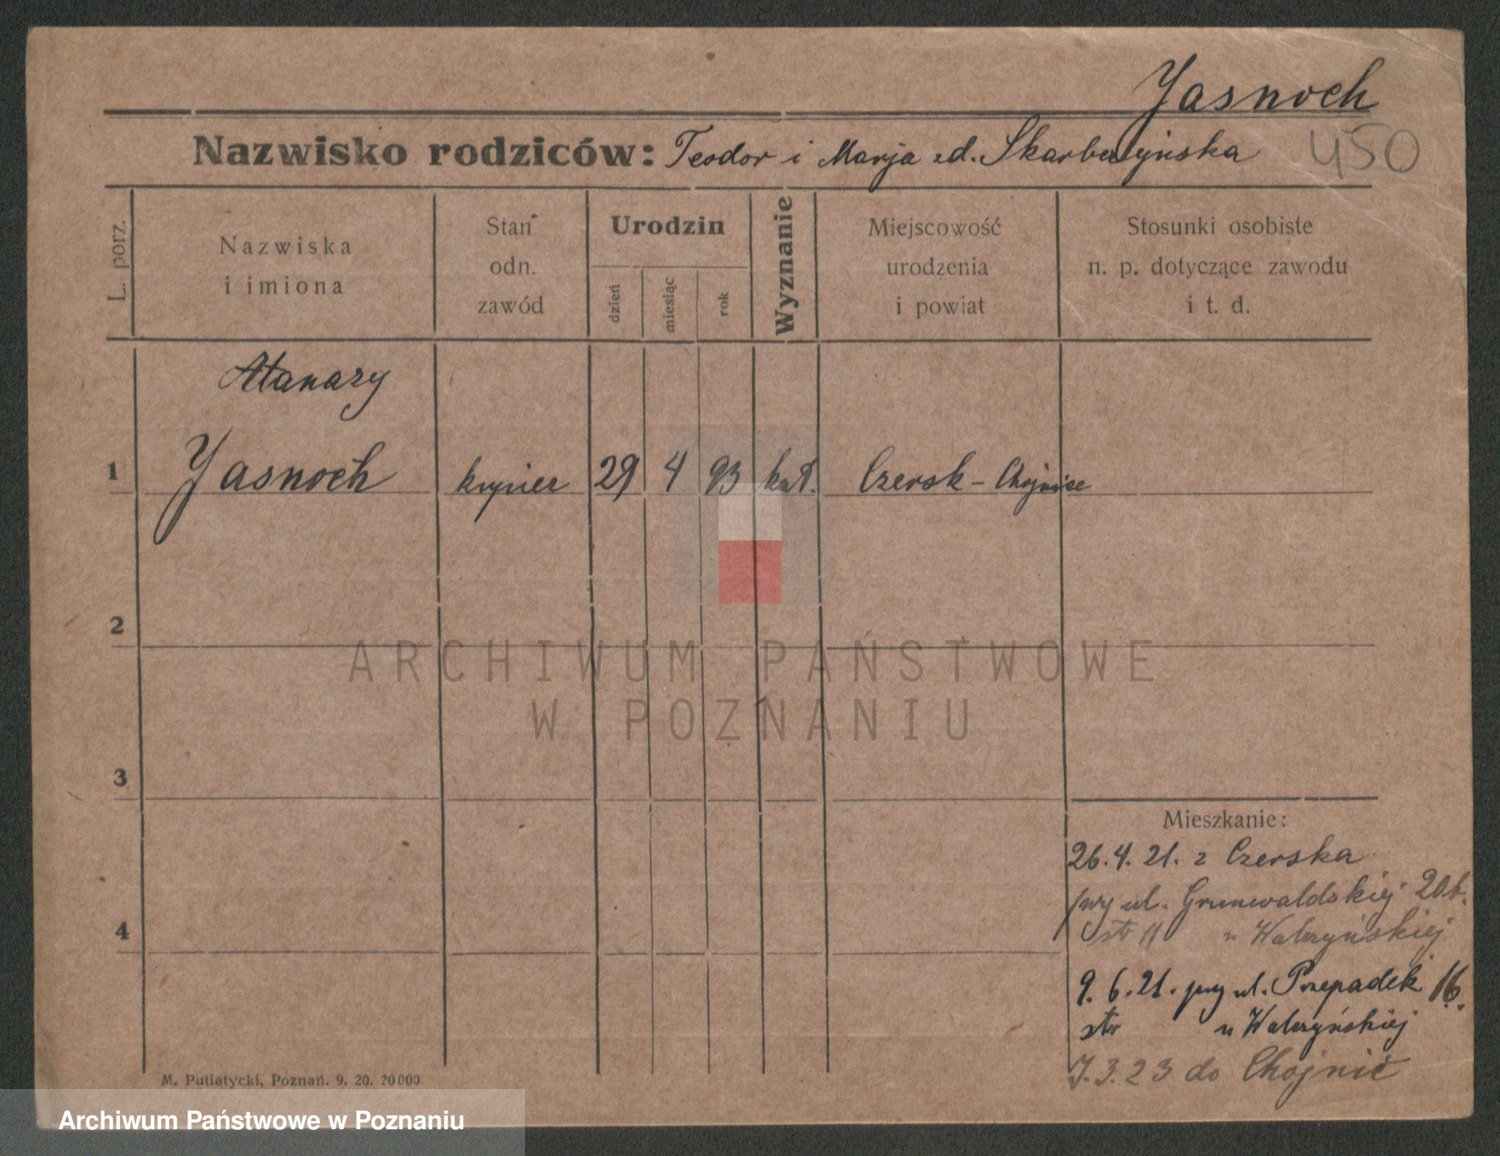 Yasnoch
Nazwisko rodziców: Teodor i Marja zd. Skarbeżyńska 450
L. porz.
Nazwiska
i imiona
Stan
odn.
zawód
Urodzin
dzień
miesiąc
rok
Wyznanie
Miejscowość
urodzenia
i powiat
Stosunki osobiste
n. p. dotyczące zawodu
i t. d.
Atanazy
1 Yasnoch kupiec 29 4 93 kat. Czersk - Chojnice
2
ARCHIWUM PAŃSTWOWE
W POZNANIU
3
4
Mieszkanie:
26.4.21. z Czerska
przy ul. Grunwaldskiej 20b.
str 11 u Walczyńskiej
9.6.21. przy ul. Przepadek 16.
str u Walczyńskiej
7.3.23 do Chojnic
M. Putiatycki, Poznań. 9. 20. 20000
Archiwum Państwowe w Poznaniu